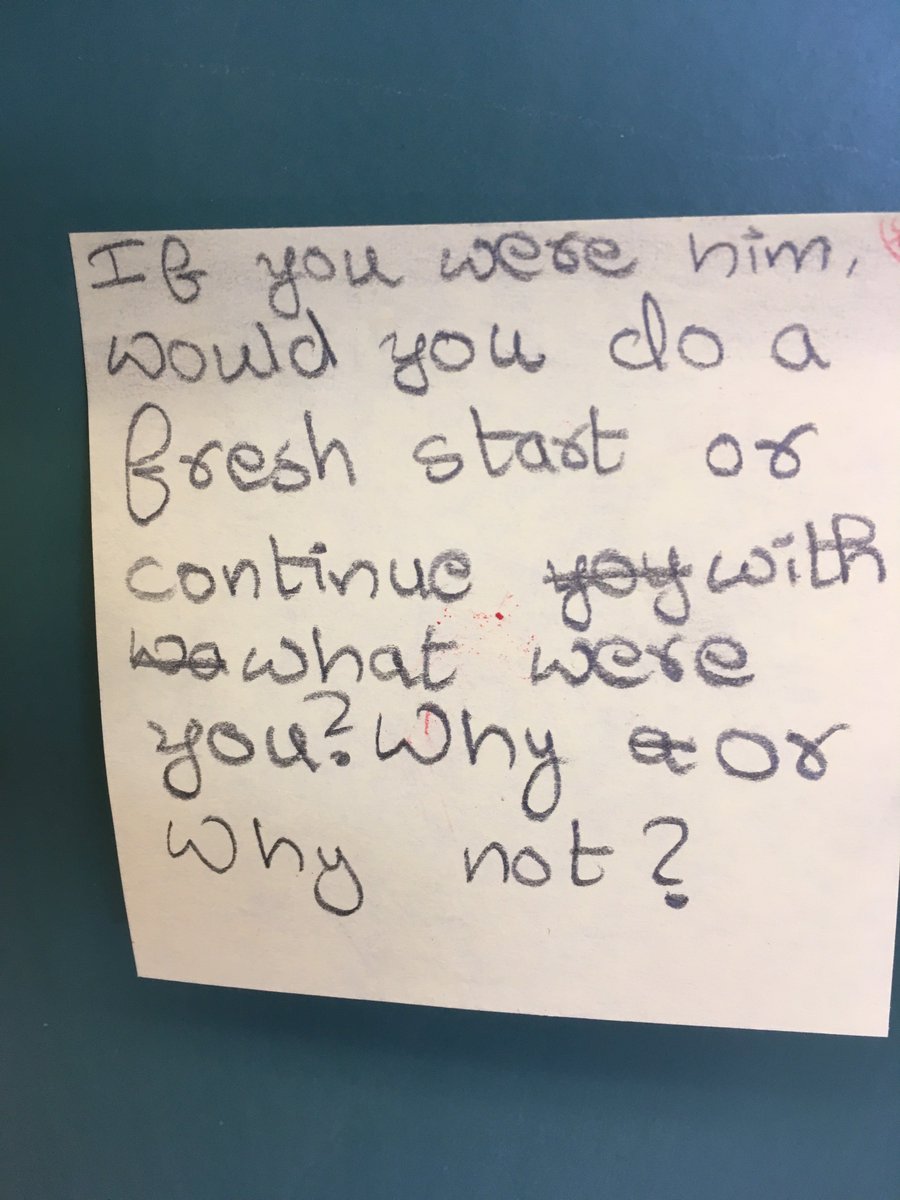 If you were him,
would you do a
fresh start or
continue with
what were
you? Why or
Why not?